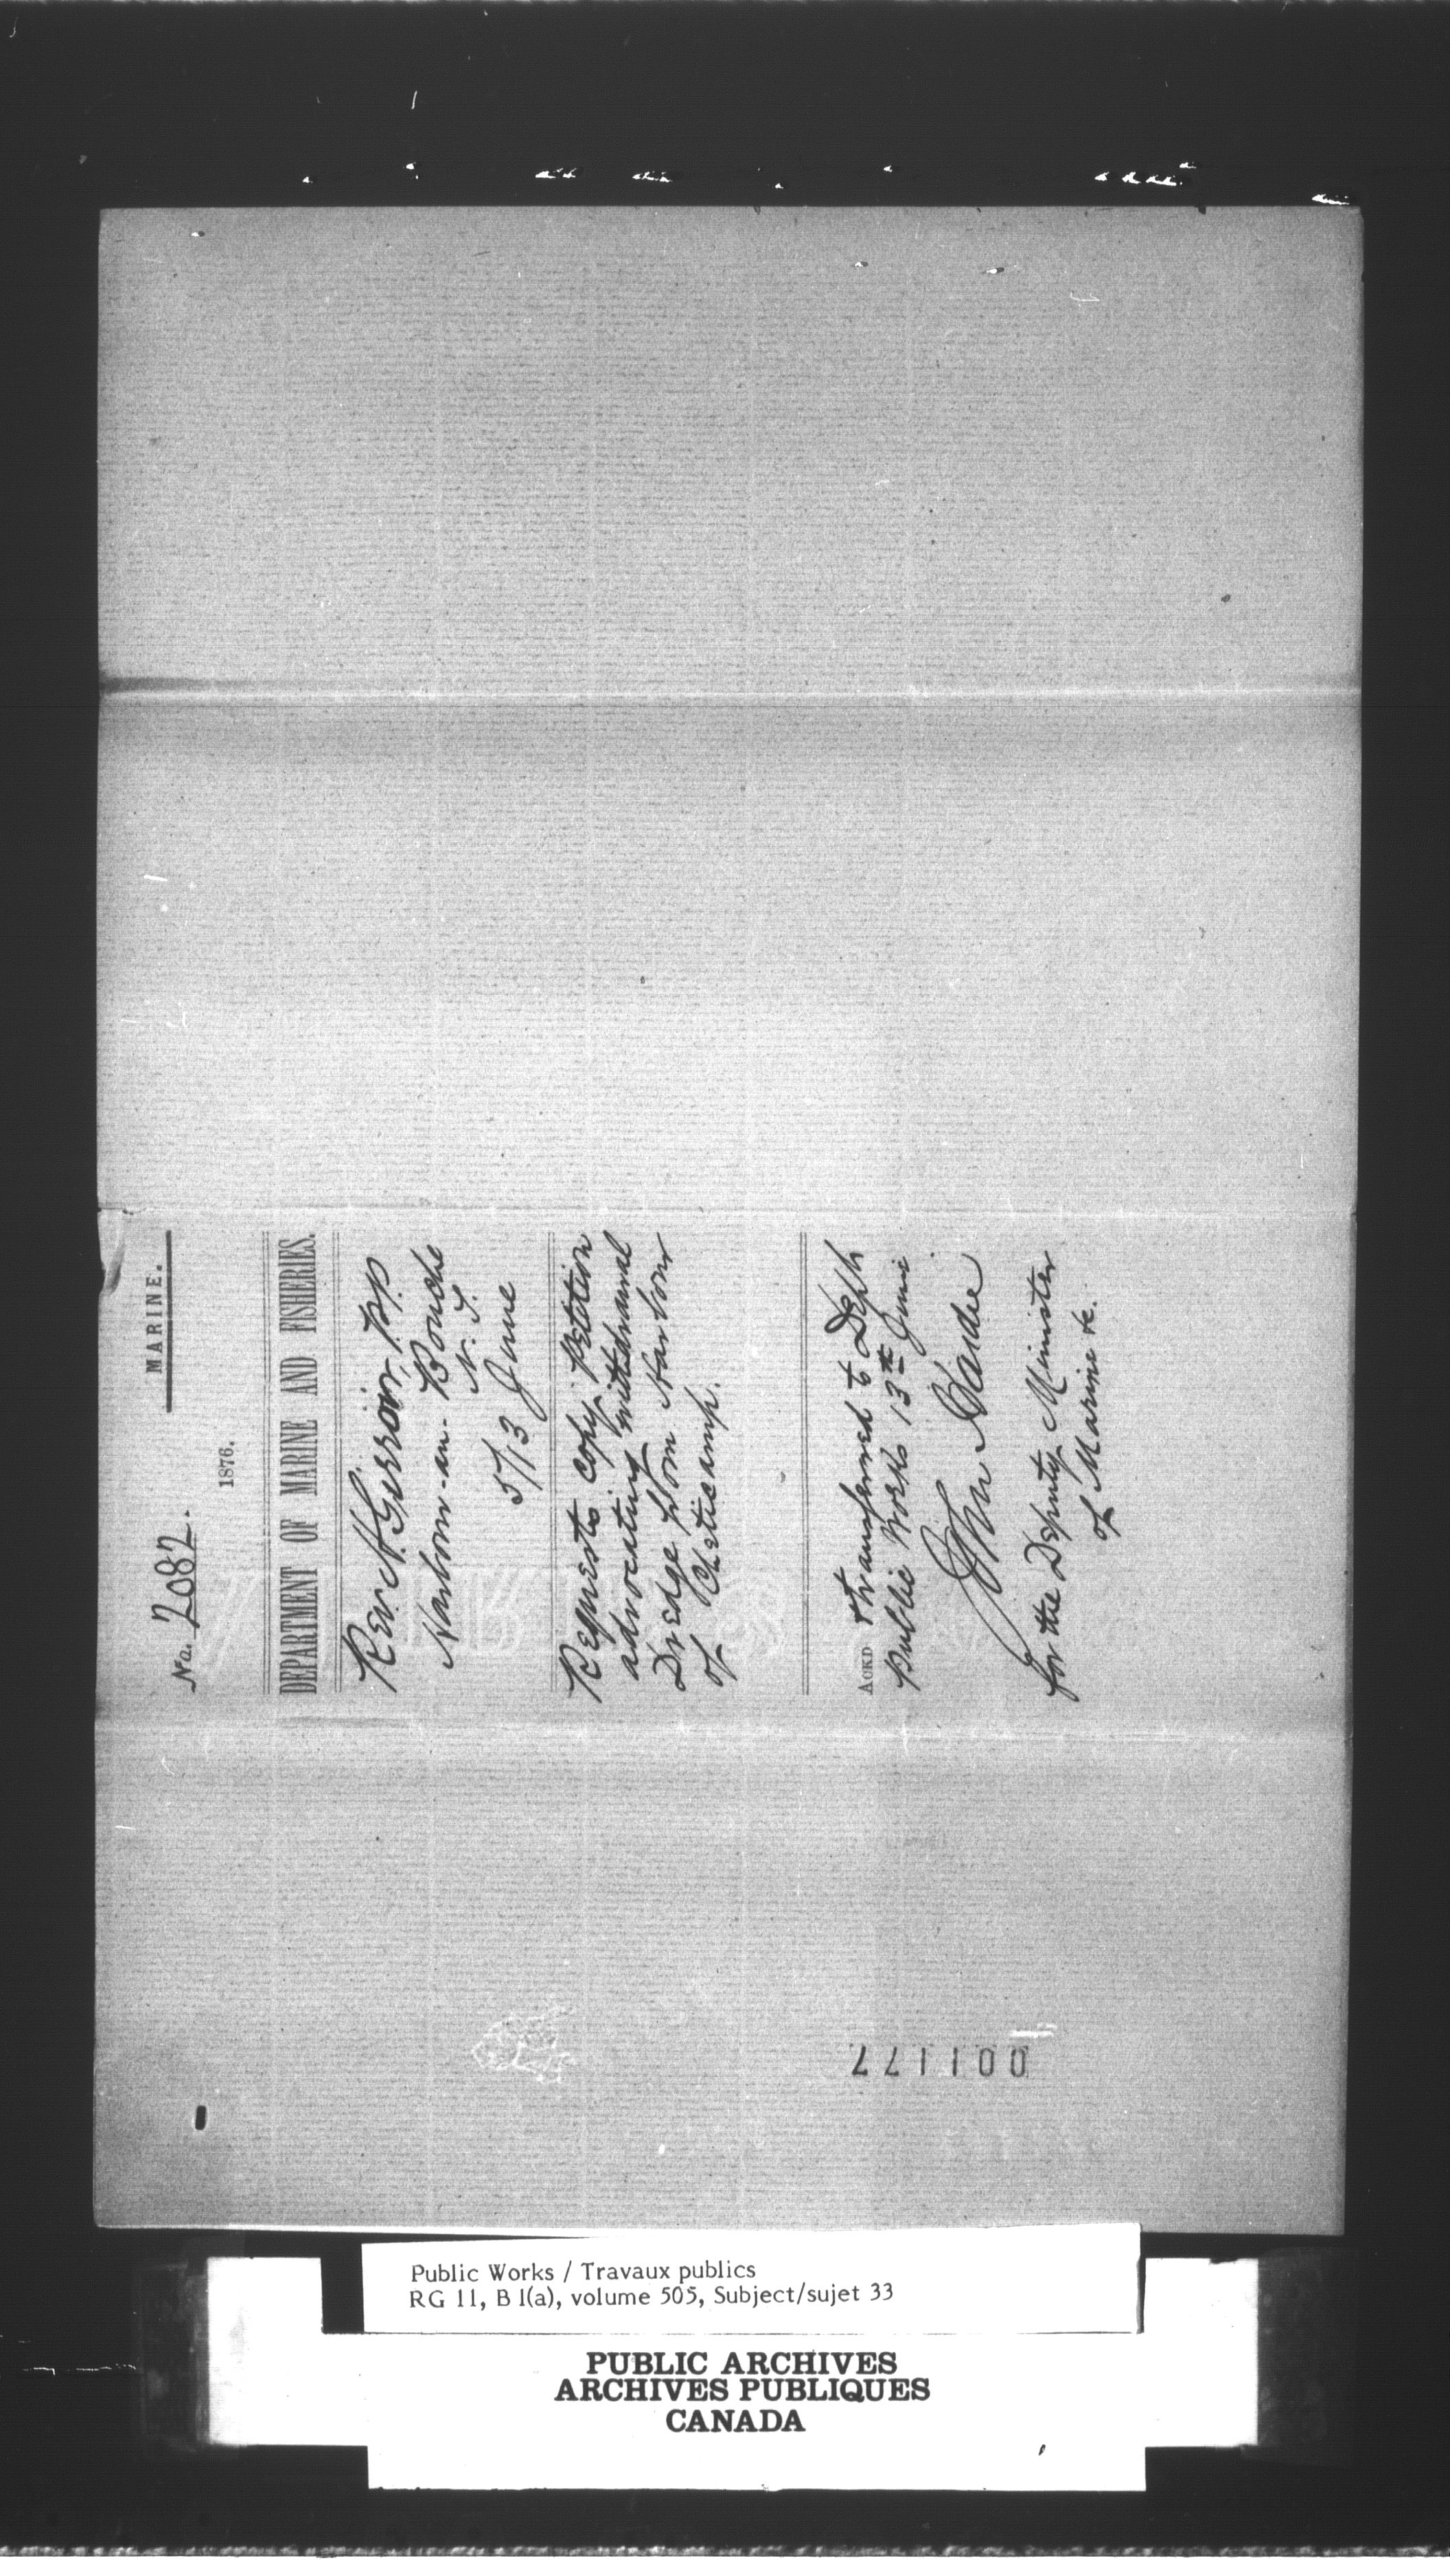 MARINE.
No. 2082.
1876.
DEPARTMENT OF MARINE AND FISHERIES.
Rev. H. Girroir, P.P.
Harbour-au-Bouche
N.S.
5/13 June
Requests copy petition
advocating withdrawal
Dredge from Harbour
of Cheticamp.
ACKD transferred to Depth
Public Works 13th June
John
for the Deputy Minister
of Marine &c.
001177
Public Works / Travaux publics
RG 11, B 1(a), volume 505, Subject/sujet 33
PUBLIC ARCHIVES
ARCHIVES PUBLIQUES
CANADA